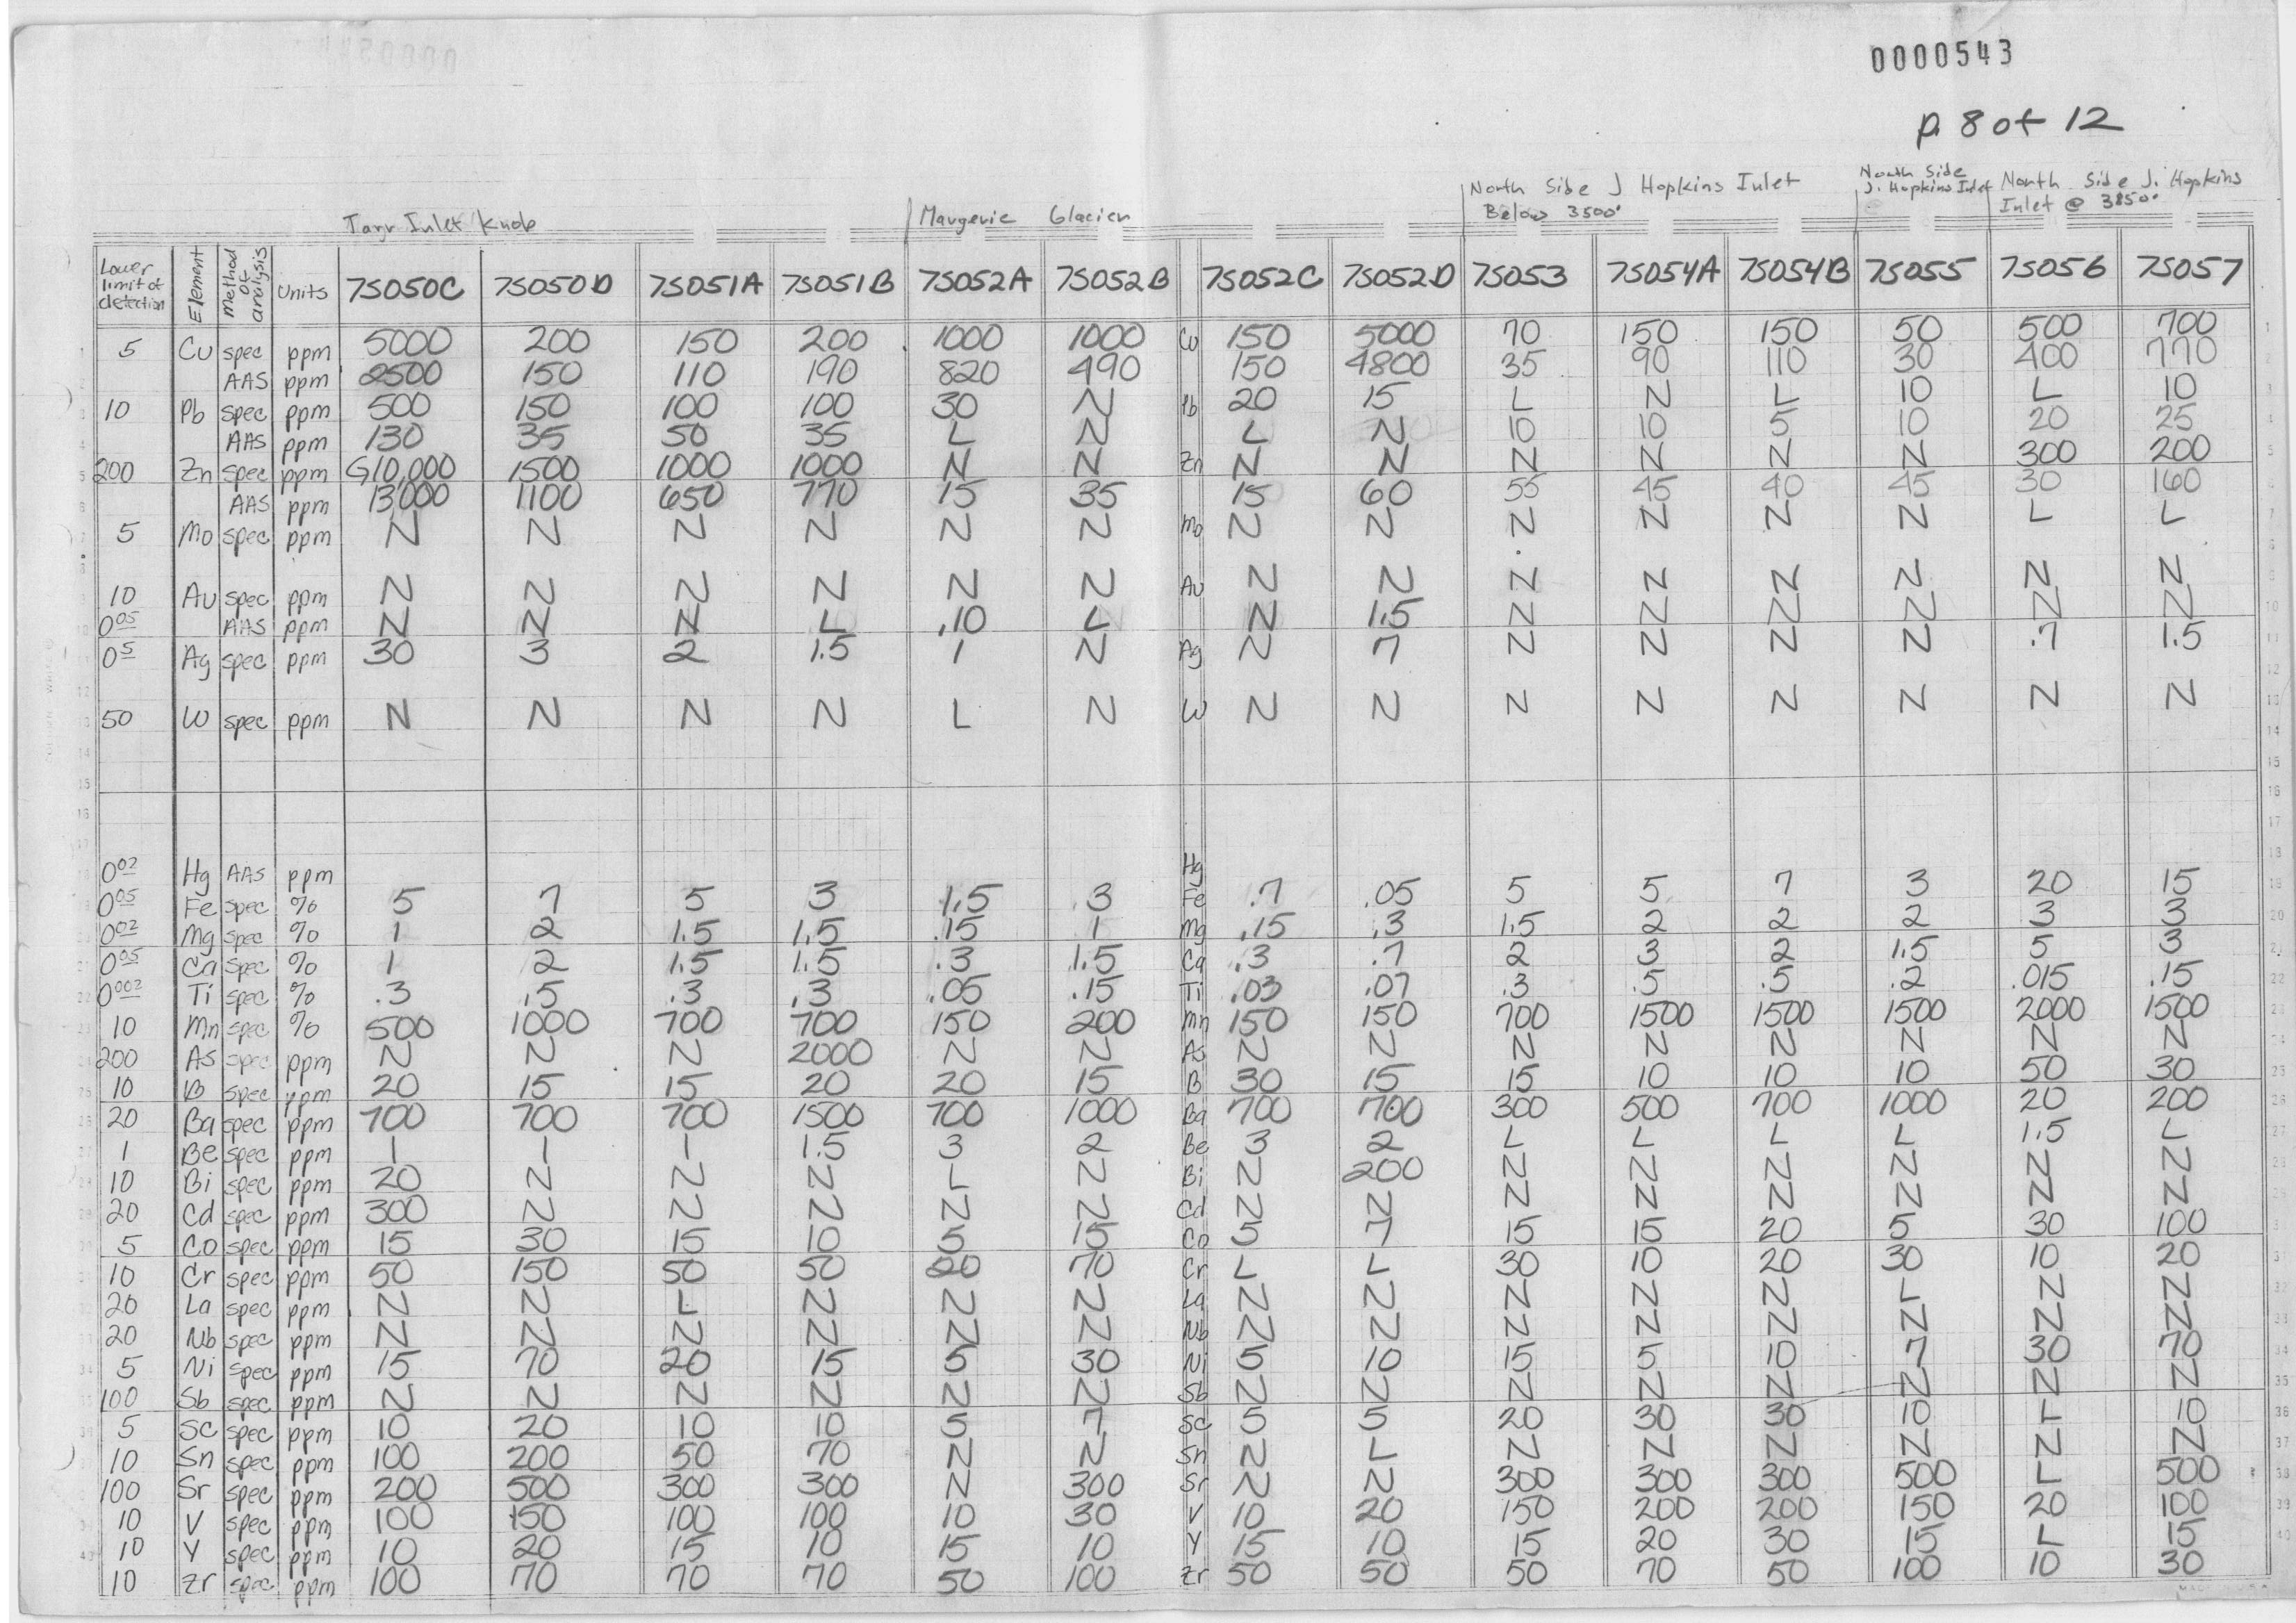 0000543
p. 8 of 12
North Side J Hopkins Inlet North Side North Side J. Hopkins
Below 3500' J. Hopkins Inlet Inlet @ 3850'
Tarr Inlet Knob Margerie Glacier
Lower limit of detection Element Method of analysis Units 7S050C 7S050D 7S051A 7S051B 7S052A 7S052B 7S052C 7S052D 7S053 7S054A 7S054B 7S055 7S056 7S057
5 Cu spec ppm 5000 200 150 200 1000 1000 Cu 150 5000 70 150 150 50 500 700
AAS ppm 2500 150 110 190 820 490 150 4800 35 90 110 30 400 770
10 Pb spec ppm 500 150 100 100 30 N Pb 20 15 L N L 10 L 10
AAS ppm 130 35 50 35 L N L N 10 10 5 10 20 25
200 Zn spec ppm G10,000 1500 1000 1000 N N Zn N N N N N N 300 200
AAS ppm 13,000 1100 650 770 15 35 15 60 55 45 40 45 30 160
5 Mo spec ppm N N N N N N Mo N N N N N N L L
10 Au spec ppm N N N N N N Au N N N N N N N N
0.05 AAS ppm N N N L .10 L N 1.5 N N N N N N
0.5 Ag spec ppm 30 3 2 1.5 1 N Ag N 7 N N N N .7 1.5
50 W spec ppm N N N N L N W N N N N N N N N
0.02 Hg AAS ppm Hg
0.05 Fe spec % 5 7 5 3 1.5 3 Fe .7 .05 5 5 7 3 20 15
0.02 Mg spec % 1 2 1.5 1.5 .15 1 Mg .15 .3 1.5 2 2 2 3 3
0.05 Ca spec % 1 2 1.5 1.5 .3 1.5 Ca .3 .7 2 3 2 1.5 5 3
0.002 Ti spec % .3 .5 .3 .3 .05 .15 Ti .03 .07 .3 .5 .5 .2 .015 .15
10 Mn spec % 500 1000 700 700 150 200 Mn 150 150 700 1500 1500 1500 2000 1500
200 As spec ppm N N N 2000 N N As N N N N N N N N
10 B spec ppm 20 15 15 20 20 15 B 30 15 15 10 10 10 50 30
20 Ba spec ppm 700 700 700 1500 700 1000 Ba 700 700 300 500 700 1000 20 200
1 Be spec ppm 1 1 1 1.5 3 2 Be 3 2 L L L L 1.5 L
10 Bi spec ppm 20 N N N L N Bi N 200 N N N N N N
20 Cd spec ppm 300 N N N N N Cd N N N N N N N N
5 Co spec ppm 15 30 15 10 5 15 Co 5 7 15 15 20 5 30 100
10 Cr spec ppm 50 150 50 50 20 70 Cr L L 30 10 20 30 10 20
20 La spec ppm N N L N N N La N N N N N L N N
20 Nb spec ppm N N N N N N Nb N N N N N N N N
5 Ni spec ppm 15 70 20 15 5 30 Ni 5 10 15 5 10 7 30 70
100 Sb spec ppm N N N N N N Sb N N N N N N N N
5 Sc spec ppm 10 20 10 10 5 7 Sc 5 5 20 30 30 10 L 10
10 Sn spec ppm 100 200 50 70 N N Sn N L N N N N N N
100 Sr spec ppm 200 500 300 300 N 300 Sr N N 300 300 300 500 L 500
10 V spec ppm 100 150 100 100 10 30 V 10 20 150 200 200 150 20 100
10 Y spec ppm 10 20 15 10 15 10 Y 15 10 15 20 30 15 L 15
10 Zr spec ppm 100 70 70 70 50 100 Zr 50 50 50 70 50 100 10 30